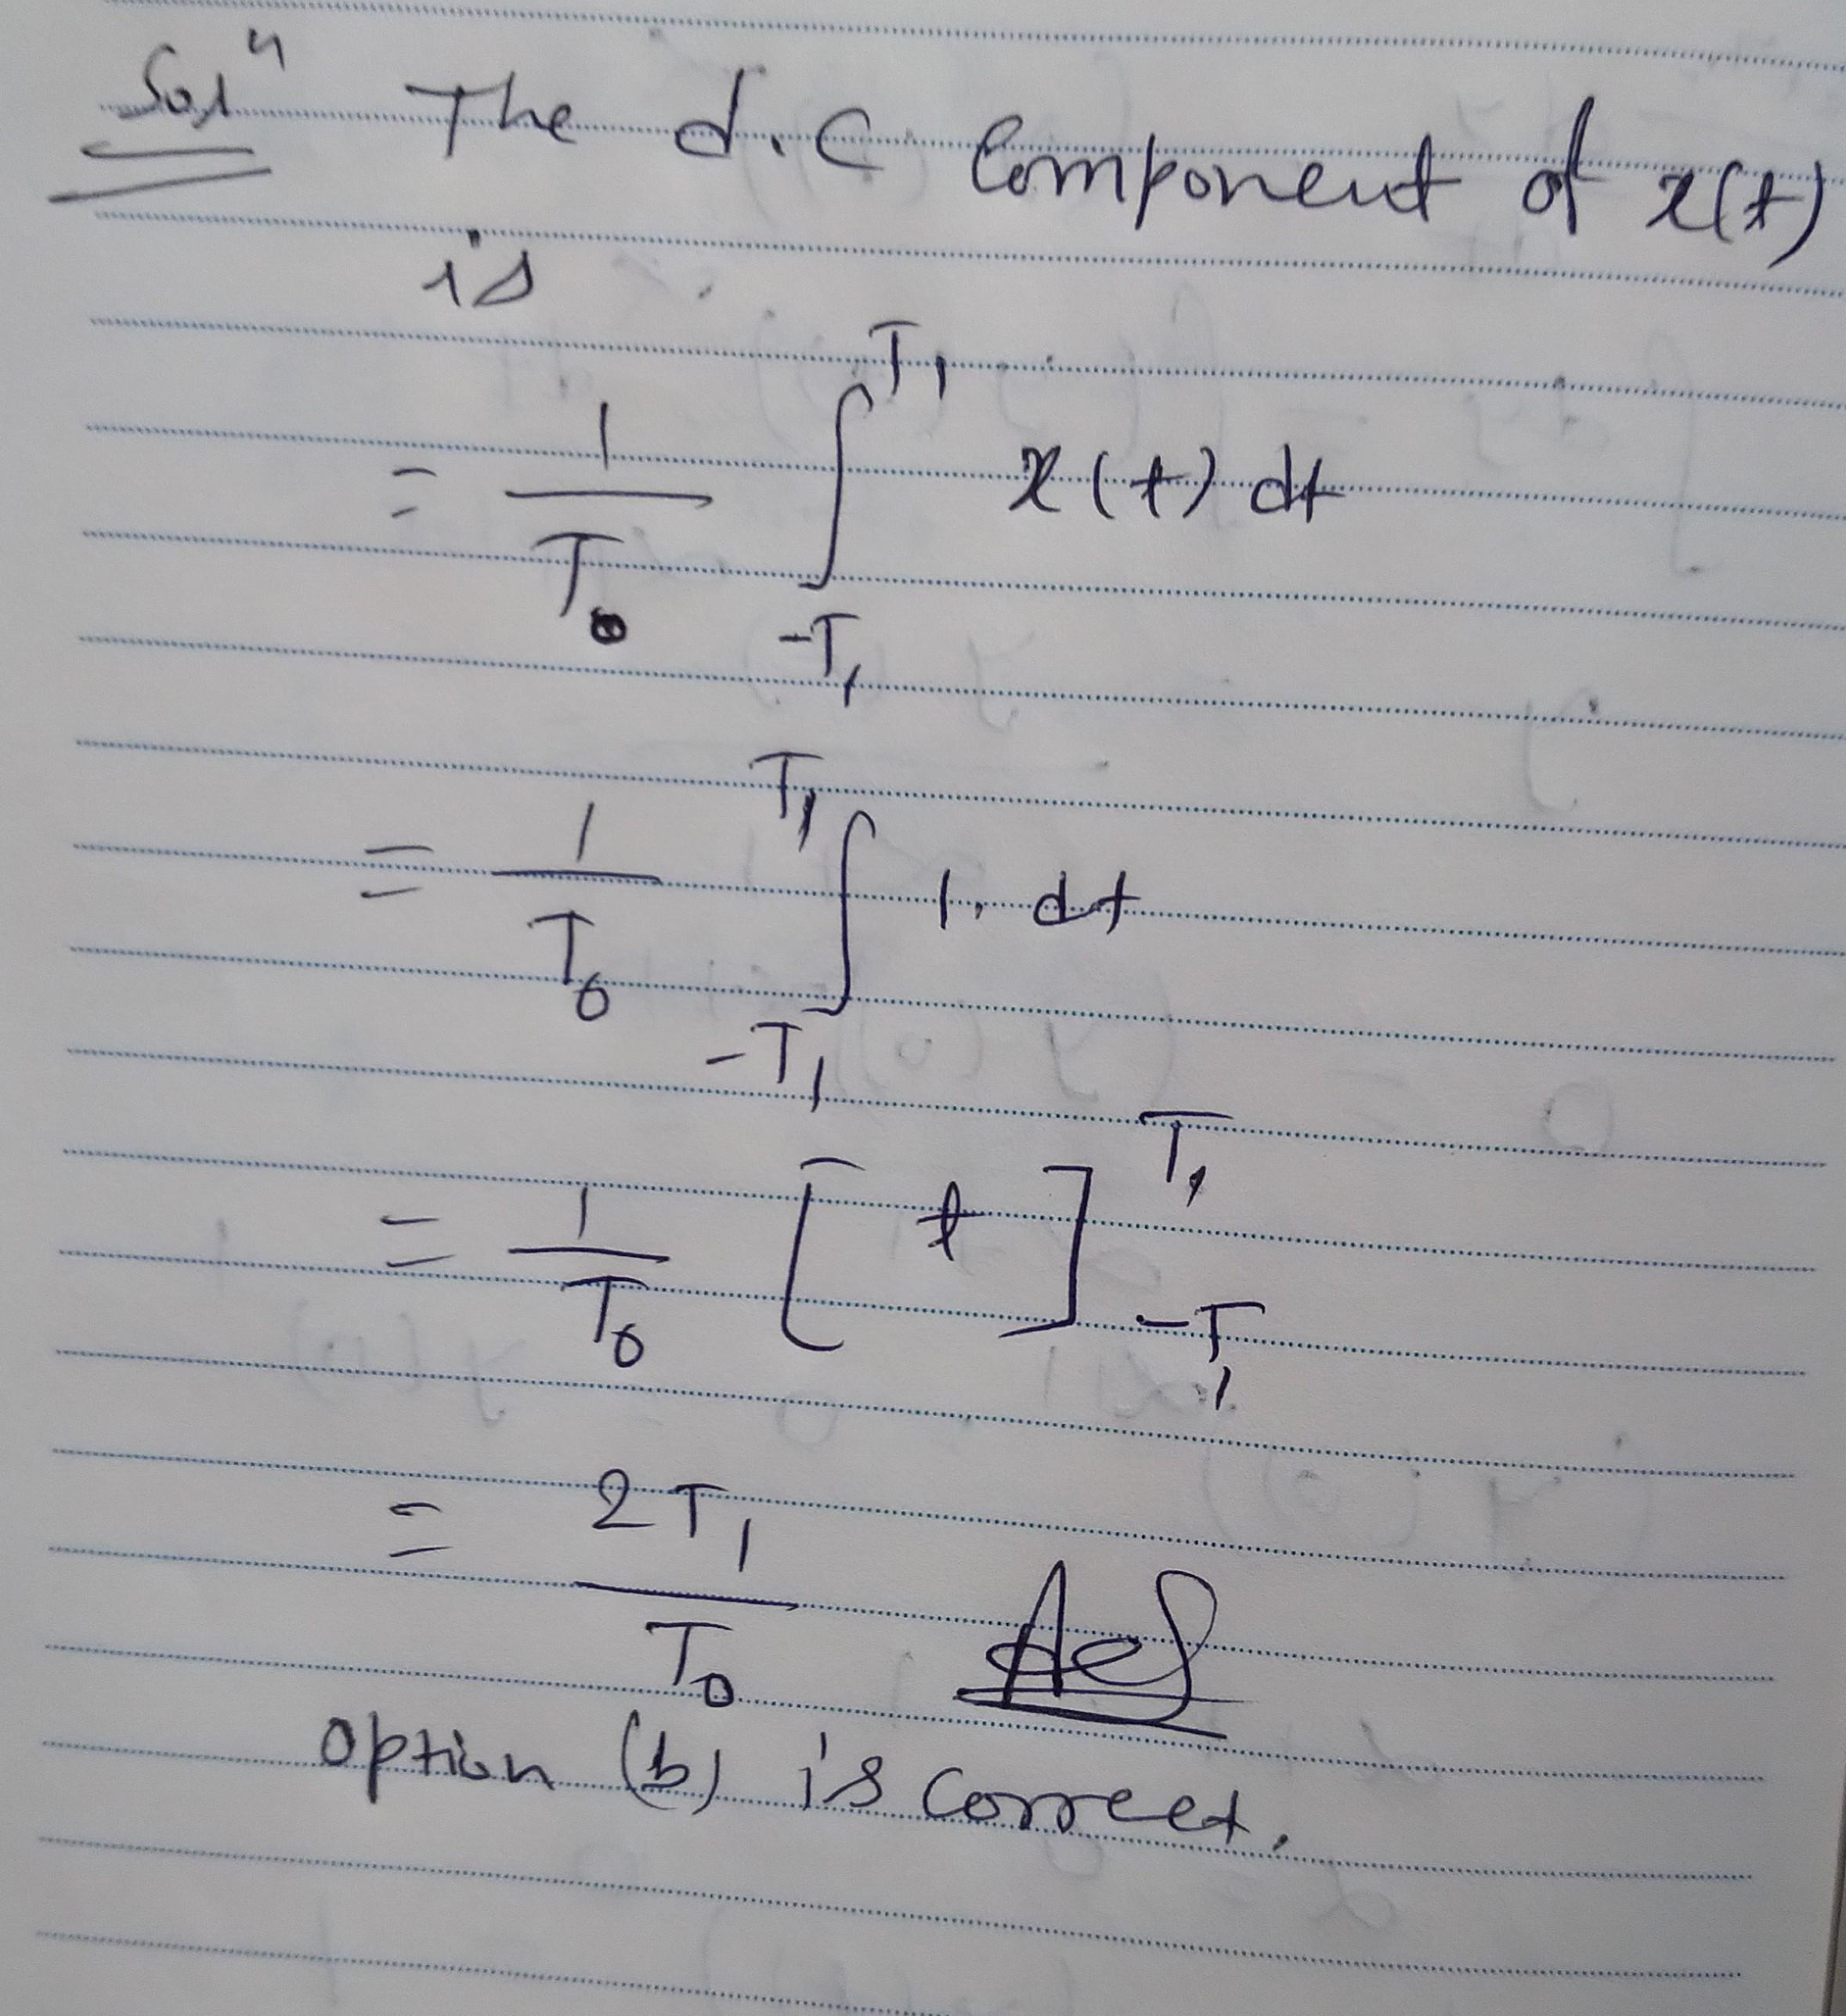 Solⁿ The d.c Component of x(t)
is
= 1/T₀ ∫_{-T₁}^{T₁} x(t) dt
= 1/T₀ ∫_{-T₁}^{T₁} 1. dt
= 1/T₀ [t]_{-T₁}^{T₁}
= 2T₁/T₀
Option (b) is correct.